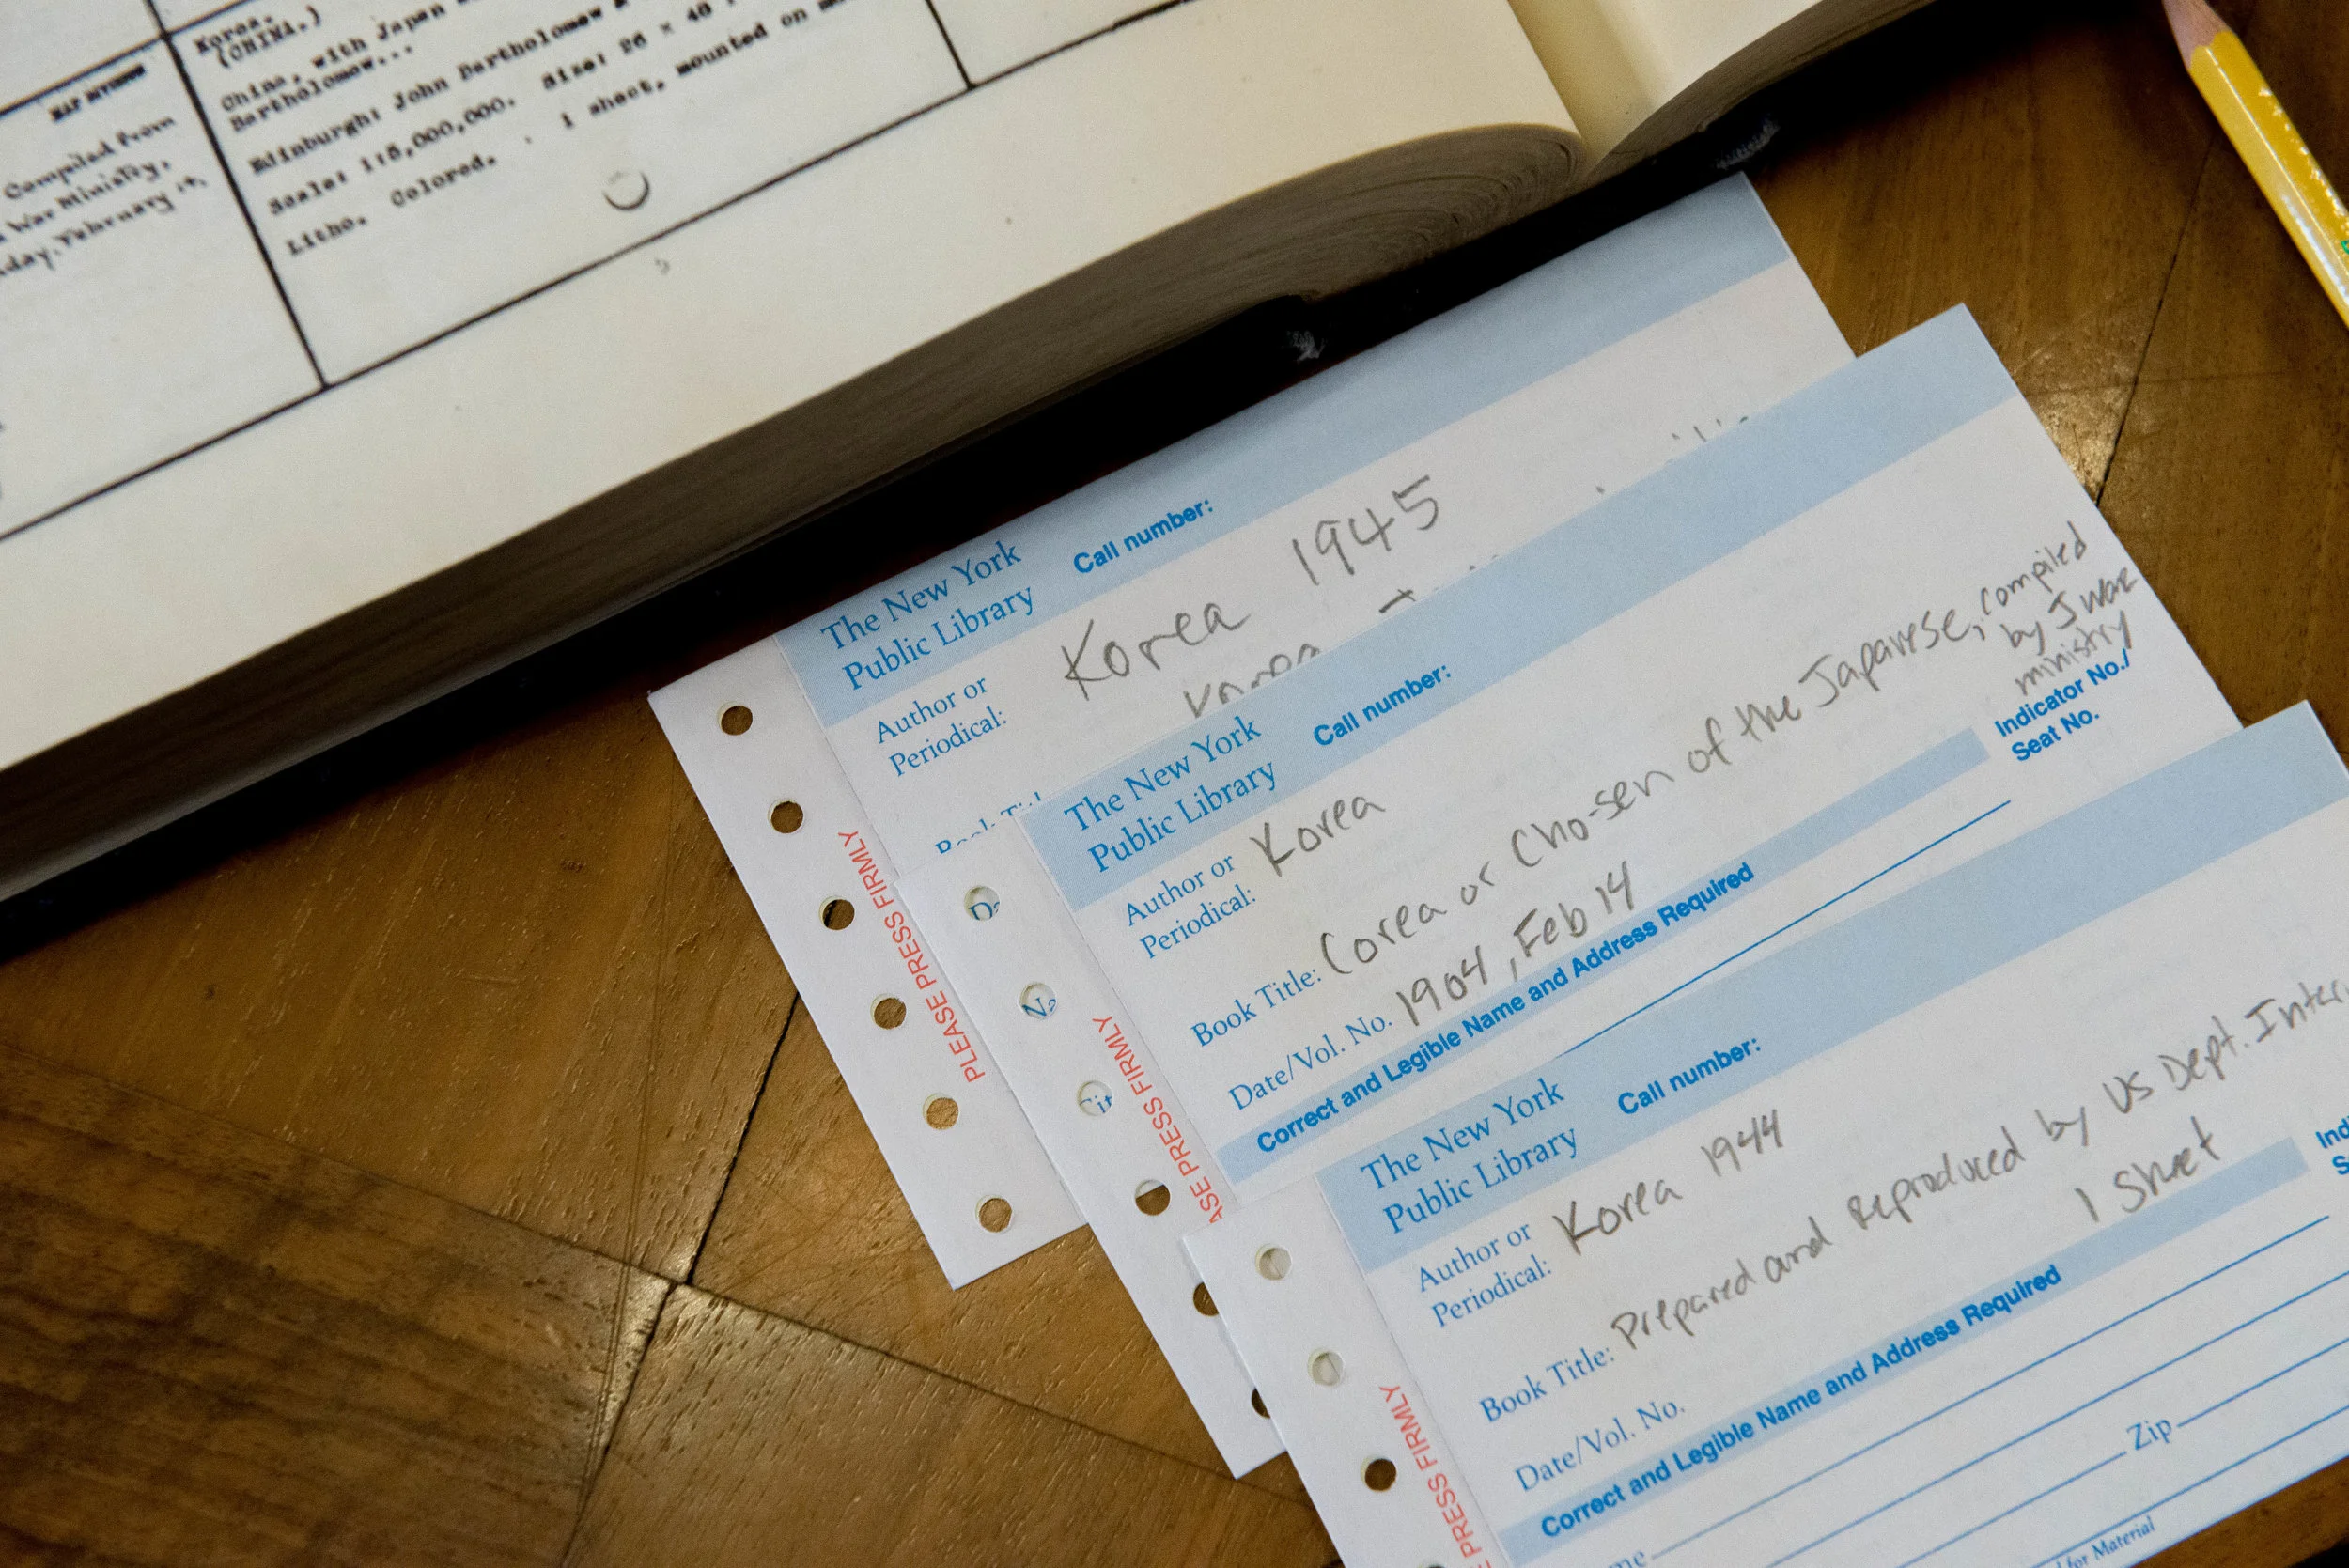 MAP DIVISION
Compiled from
War Ministry.
day, February 14,
Korea.
(CHINA.)
China, with Japan
Bartholomew...
Edinburgh: John Bartholomew &
Scale: 1:5,000,000. Size: 26 × 40
Litho. Colored. 1 sheet, mounted on
The New York
Public Library
Call number:
Author or
Periodical:
Korea 1945
Korea
PLEASE PRESS FIRMLY
The New York
Public Library
Call number:
Author or
Periodical: Korea
Book Title: Corea or Cho-sen of the Japanese, Compiled
by J War
ministry
Date/Vol. No. 1904, Feb 14
Indicator No./
Seat No.
Correct and Legible Name and Address Required
PRESS FIRMLY
The New York
Public Library
Call number:
Author or
Periodical: Korea 1944
Book Title: Prepared and Reproduced by US Dept. Inter
1 Sheet
Date/Vol. No.
Correct and Legible Name and Address Required
Zip
for Material
PRESS FIRMLY